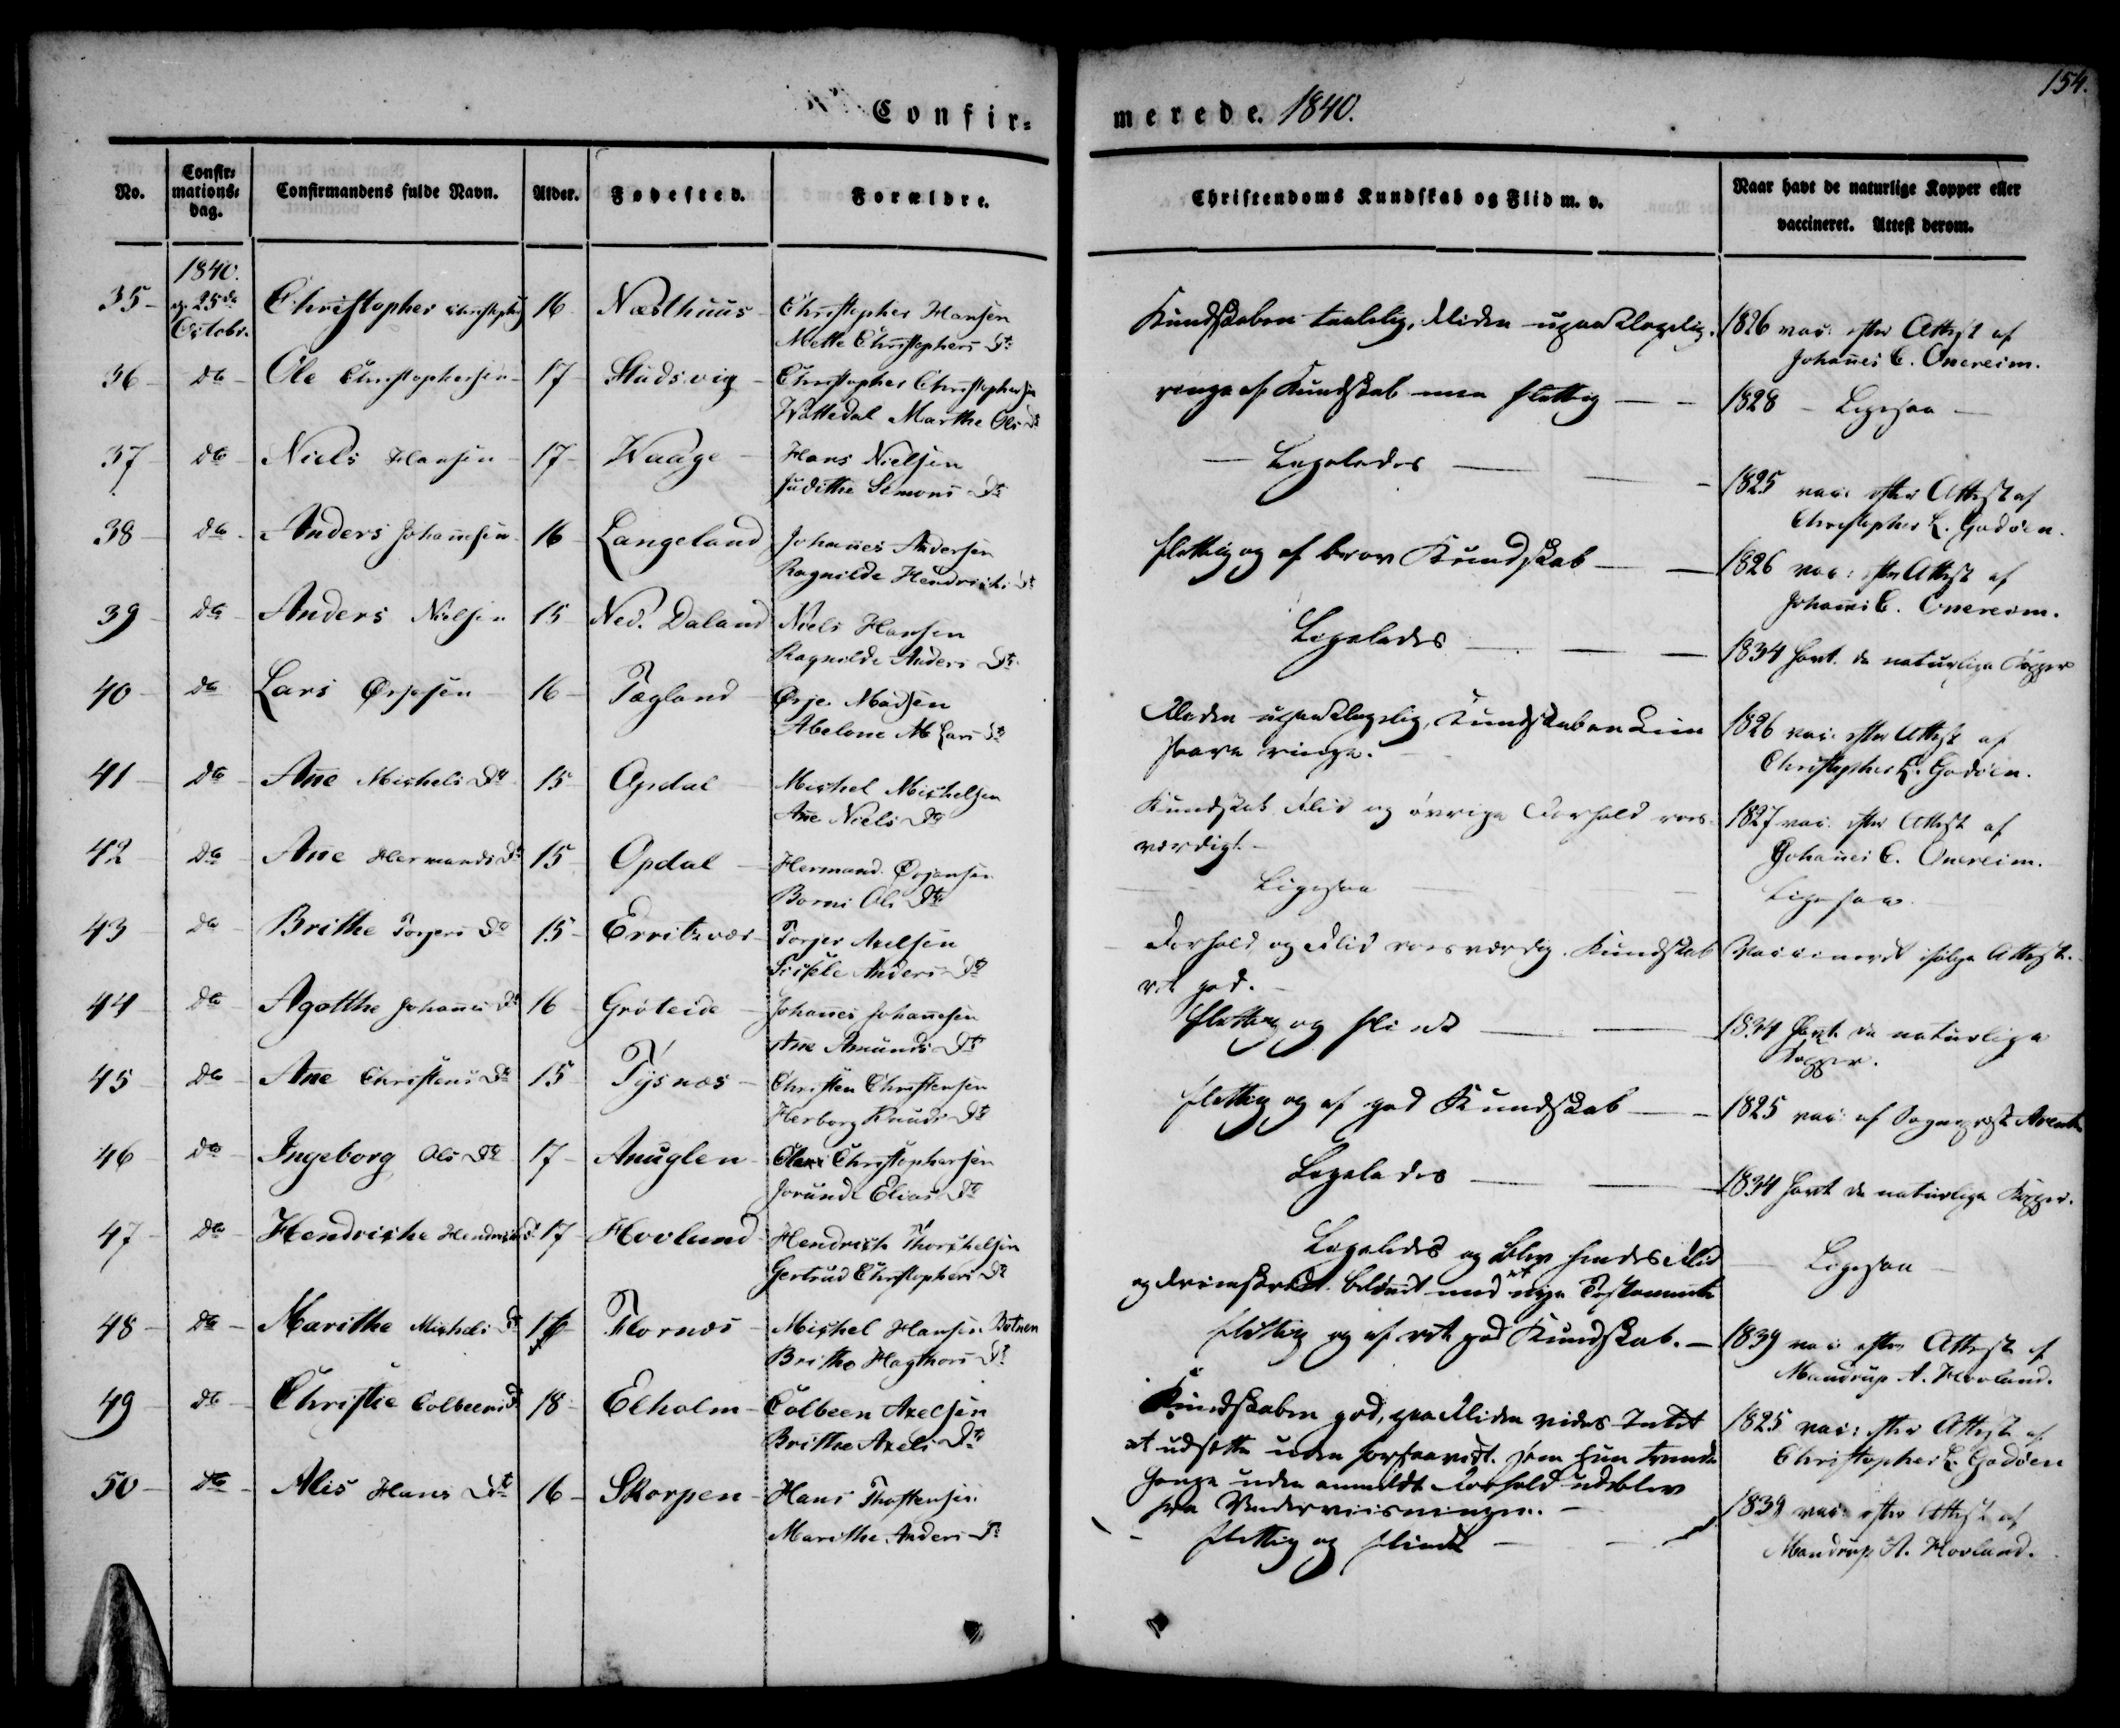 154.
Confir=
merede. 1840.
No.
Confir=
mations=
dag.
Confirmandens fulde Navn.
Alder.
Fødested.
Forældre.
Christendoms Kundskab og Flid m. v.
Naar havt de naturlige Kopper eller
vaccineret. Attest derom.
1840.
35 - 25de Octobr. Christopher 16 - Næsthuus - Christopher Hansen
Mette Christophers Dtr
Kundskaben taalelig, Fliden upaaklagelig.
1826 vac: efter Attest af
Johañes C. Onereim.
36 - do - Ole Christophersen - 17 - Hudsvig - Christopher Christophersen
Wattedal Marthe Ols Dr
ringe af Kundskab men flittig
1828 - Ligesaa -
37 - do - Niels Hansen - 17 - Waage - Hans Nielsen
Judithe Simons Dr
- Ligeledes -
1825 vac: efter Attest af
Christopher L. Godøen.
38 - do - Anders Johannesen - 16 - Langeland Johañes Andersen
Ragnilde Hendrichs Dr
flittig og af brav Kundskab -
1826 vac: efter Attest af
Johañes C. Onereim.
39 - do - Anders Nielsen 15 - Ned. Daland Niels Hansen
Ragnilde Anders Dr
Ligeledes -
1834 havt de naturlige Kopper
40 - do Lars Ørjesen - 16 - Tægland - Ørje Madsen
Abelone M Lars Dr
Fliden upaaklagelig, Kundskaben kun
saare ringe.
1826 vac. efter Attest af
Christopher L. Godøen.
41 - do - Añe Michels Dr 15 - Opdal - Michel Michelsen
Añe Niels Dr
Kundskab Flid og øvrige Forhold roes-
værdigt. -
1827 vac. efter Attest af
Johañes C. Onereim.
42 do - Añe Hermands Dr 15 - Opdal - Hermand Ørjansen
Borni Ols Dr
- Ligesaa -
Ligesaa.
43 - do - Brithe Torjers Dr 15 - Erritsvær - Torjer Axelsen
Sissele Anders Dr
Forhold og Flid roesværdig. Kundskab
ret god. -
Vaccineret ifølge Attest.
44 - do - Agatthe Johañes Dr 16 - Gróteide - Johañes Johañesen
Añe Amunds Dr
flittig og flink -
1834 havt de naturlige
Kopper.
45 - do - Añe Christens Dr 15 - Tysnæs - Christen Christensen
Herborg Knuds Dr
flittig og af god Kundskab -
1825 vac: af Sognepræst
46 - do - Ingeborg Ols Dr 17 - Anuglen - Christophersen
Jorunde Elias Dr
Ligeledes -
1834 havt de naturlige Kopper.
47 - do - Hendriche Hendrichs Dr 17 - Hovland - Hendrich Thorchelsen
Gertrud Christophers Dr
Ligeledes og blev hendes Flid
og belønt med et nye Testamente
- Ligesaa -
48 - do - Marithe Michels Dr Flornæs - Michel Hansen Botnen
Brithe Hagthors Dr
flittig og af ret god Kundskab. -
1839 vac. efter Attest af
Mandrup A. Hovland.
49 do - Christie Colbeens Dr 18 - Eeholm - Colbeen Axelsen
Brithe Axels Dr
Kundskaben god, paa Fliden vides Intet
at udsætte uden forsaavidt. som hun trende
Gange uden anmeldt Forhold udeblev
fra Underviisningen. -
1825 vac: efter Attest af
Christopher L. Godøen
50 - do - Alis Hans Dtr 16 - Skorpen - Hans Thostensen
Marithe Anders Dr
- flittig og flink -
1839 vac: efter Attest af
Mandrup A. Hovland.